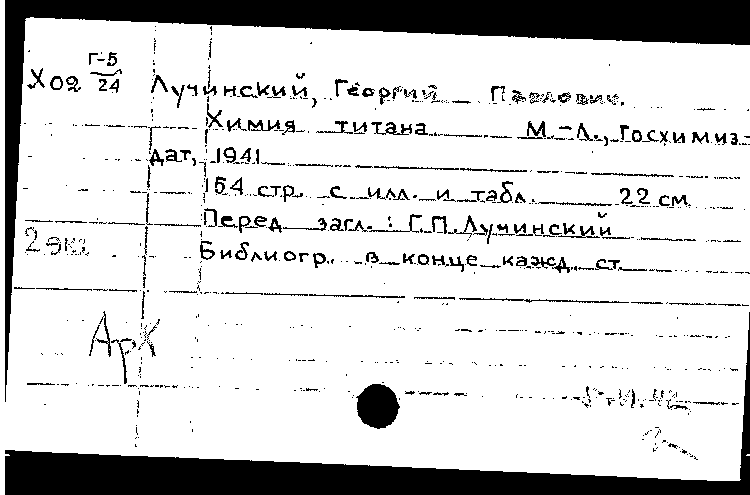 Г-5
Х02 24 Лучинский, Георгий Павлович.
Химия титана М.-Л., Госхимиз-
дат, 1941
154 стр. с илл. и табл. 22 см
Перед загл.: Г.П.Лучинский
2 экз. Библиогр. в конце кажд. ст.
Арх